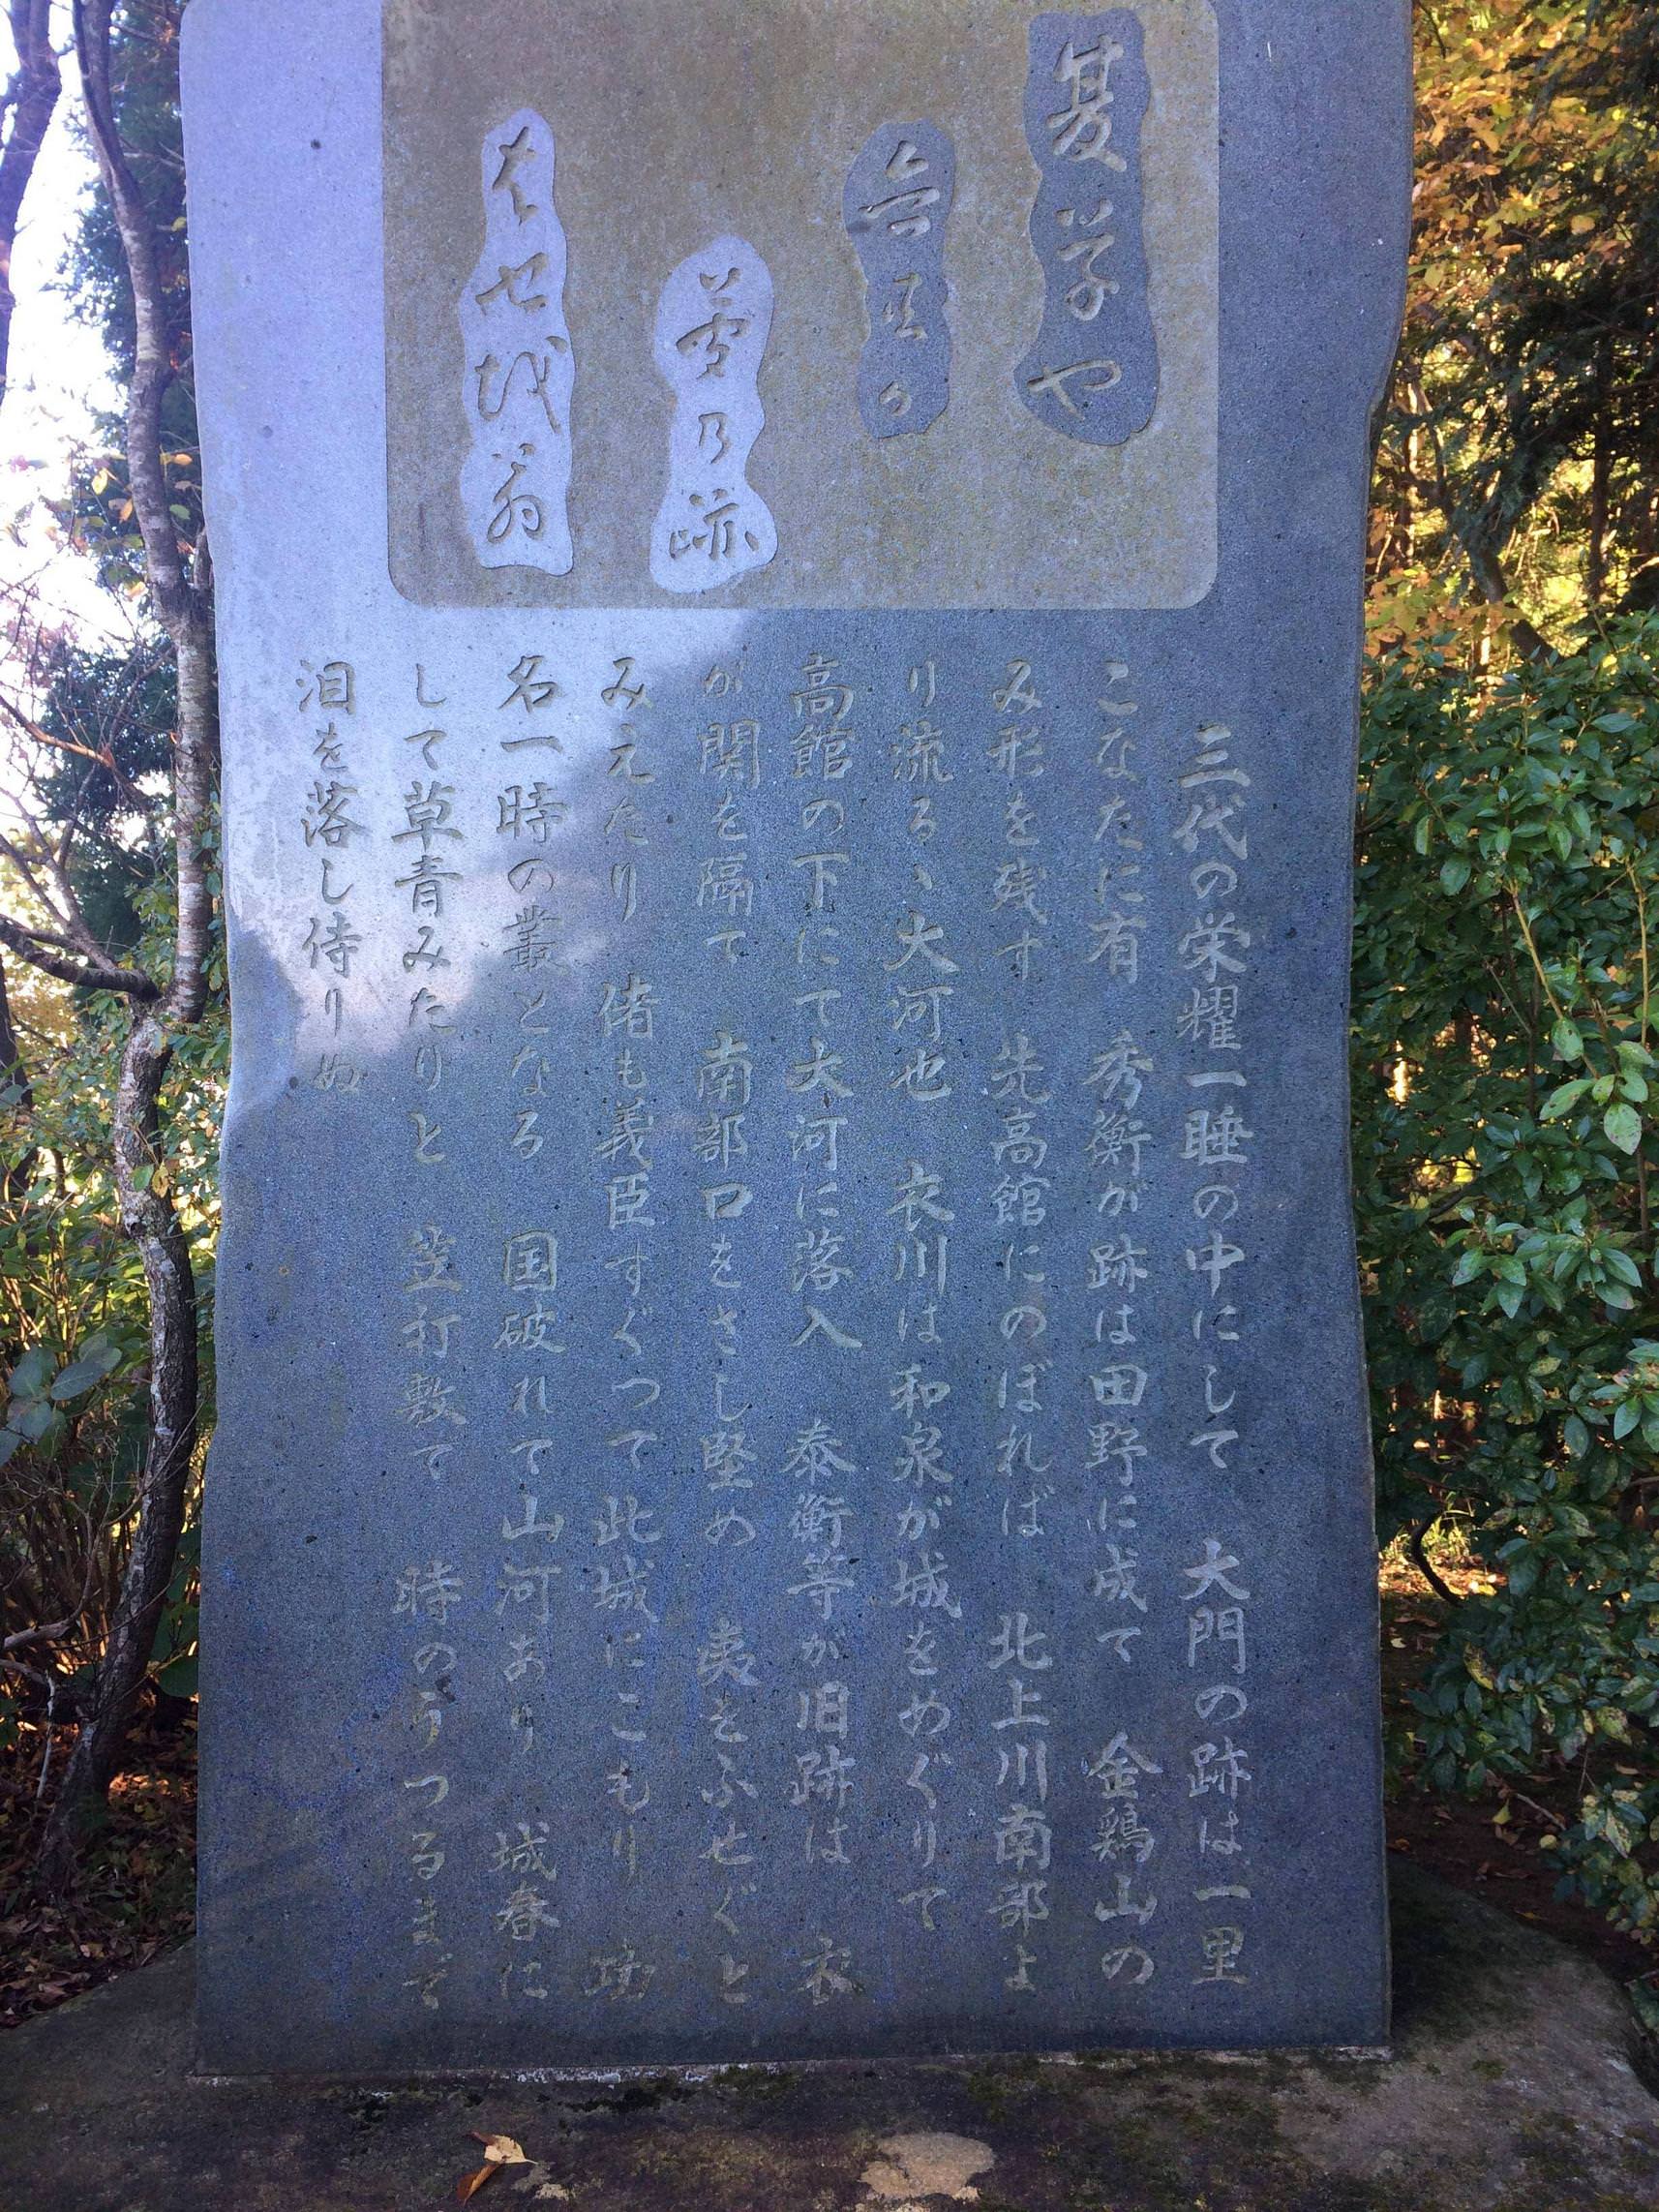 夏草や
兵共が
夢乃跡
はせを翁
三代の栄耀一睡の中にして 大門の跡は一里
こなたに有 秀衡が跡は田野に成て 金鶏山の
み形を残す 先高館にのぼれば 北上川南部よ
り流るゝ大河也 衣川は和泉が城をめぐりて
高館の下にて大河に落入 泰衡等が旧跡は 衣
が関を隔て 南部口をさし堅め 夷をふせぐと
みえたり 偖も義臣すぐつて此城にこもり 功
名一時の叢となる 国破れて山河あり 城春に
して草青みたりと 笠打敷て 時のうつるまで
泪を落し侍りぬ